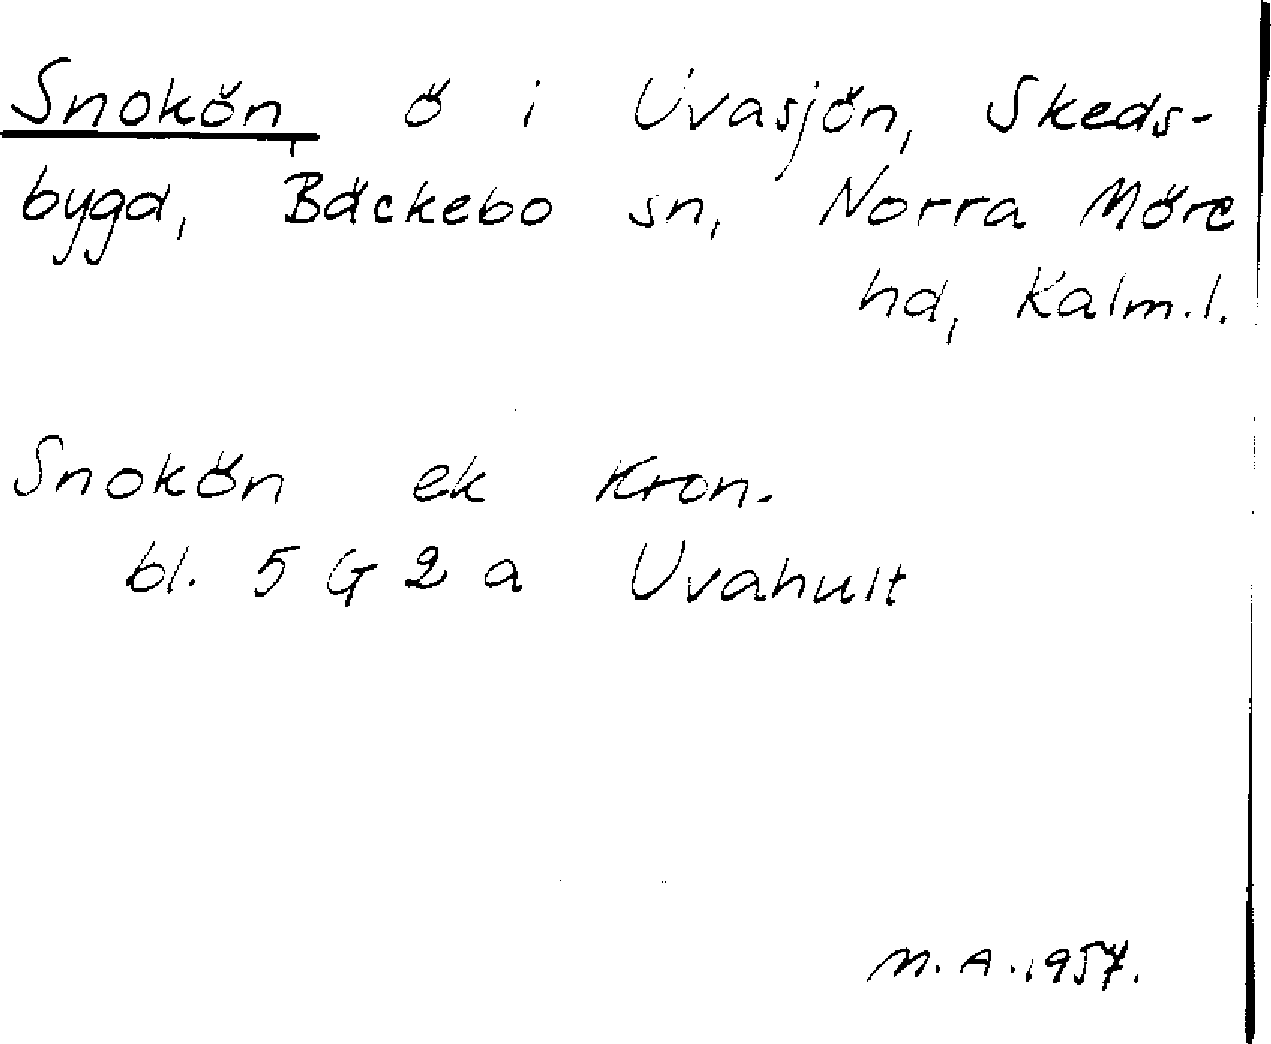 Snokön, ö i Uvasjön, Skeds-
bygd, Bäckebo sn, Norra Möre
hd, Kalm.l.
Snokön ek Kron.
bl. 5 G 2 a Uvahult
M.A. 1957.